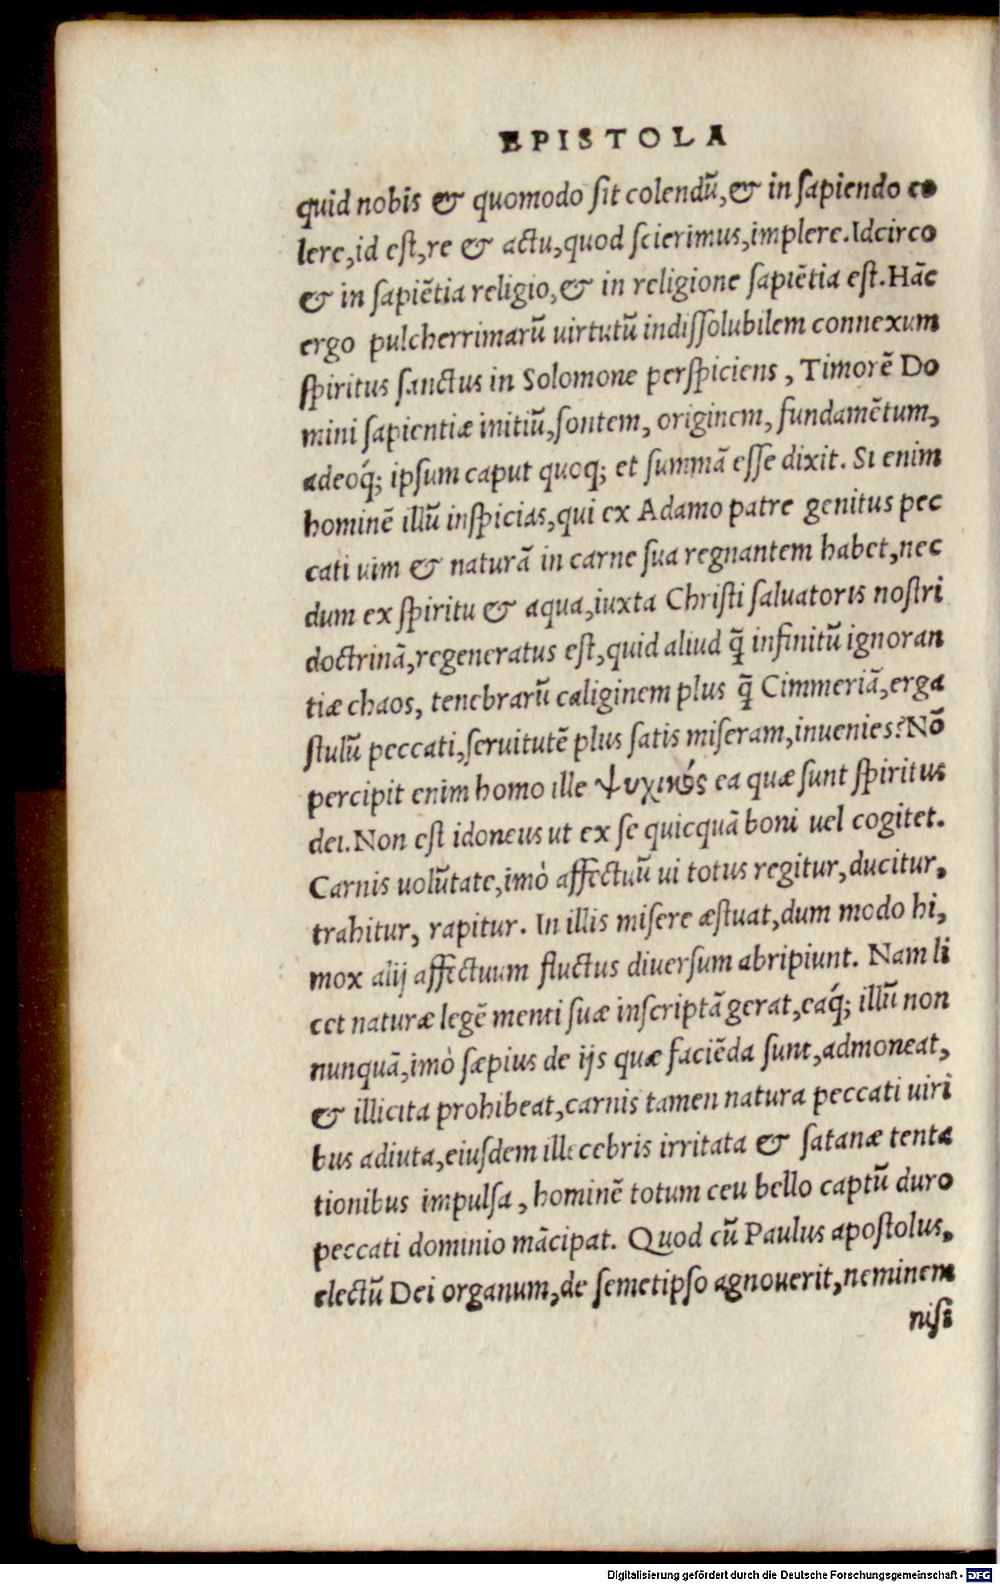 EPISTOLA
quid nobis & quomodo sit colendū,& in sapiendo co
lere,id est,re & actu,quod scierimus,implere.Idcirco
& in sapiētia religio,& in religione sapiētia est.Hāc
ergo pulcherrimarū uirtutū indissolubilem connexum
spiritus sanctus in Solomone perspiciens , Timorē Do
mini sapientiæ initiū,fontem, originem, fundamētum,
adeoq́; ipsum caput quoq; et summā esse dixit. Si enim
hominē illū inspicias,qui ex Adamo patre genitus pec
cati uim & naturā in carne sua regnantem habet,nec
dum ex spiritu & aqua,iuxta Christi saluatoris nostri
doctrinā,regeneratus est,quid aliud q̄ infinitū ignoran
tiæ chaos, tenebrarū caliginem plus q̄ Cimmeriā,erga
stulū peccati,seruitutē plus satis miseram,inuenies?Nō
percipit enim homo ille ψυχικός ea quæ sunt spiritus
dei.Non est idoneus ut ex se quicquā boni uel cogitet.
Carnis uolūtate,imò affectuū ui totus regitur,ducitur,
trahitur, rapitur. In illis misere æstuat,dum modo hi,
mox alij affectuum fluctus diuersum abripiunt. Nam li
cet naturæ legē menti suæ inscriptā gerat,eaq́; illū non
nunquā,imò sæpius de ijs quæ faciēda sunt,admoneat,
& illicita prohibeat,carnis tamen natura peccati uiri
bus adiuta,eiusdem illecebris irritata & satanæ tenta
tionibus impulsa , hominē totum ceu bello captū duro
peccati dominio mācipat. Quod cū Paulus apostolus,
electū Dei organum,de semetipso agnouerit,neminem
nisi
Digitalisierung gefördert durch die Deutsche Forschungsgemeinschaft - DFG